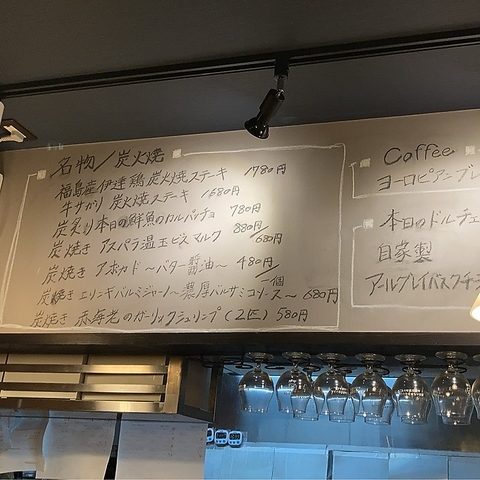 名物/炭火焼
福島産伊達鶏炭火焼ステーキ 1780円
牛サガリ 炭火焼ステーキ 1680円
炭炙り本日の鮮魚のカルパッチョ 780円
炭焼き アスパラ温玉ビスマルク 880円/680円
炭焼き アボカド～バター醤油～ 480円/一個
炭焼き エリンギパルミジャーノ～濃厚バルサミコソース～ 680円
炭焼き 赤海老のガーリックシュリンプ(2匹) 580円
Coffee
ヨーロピアンブレ
本日のドルチェ
自家製
アールグレイバスクチ